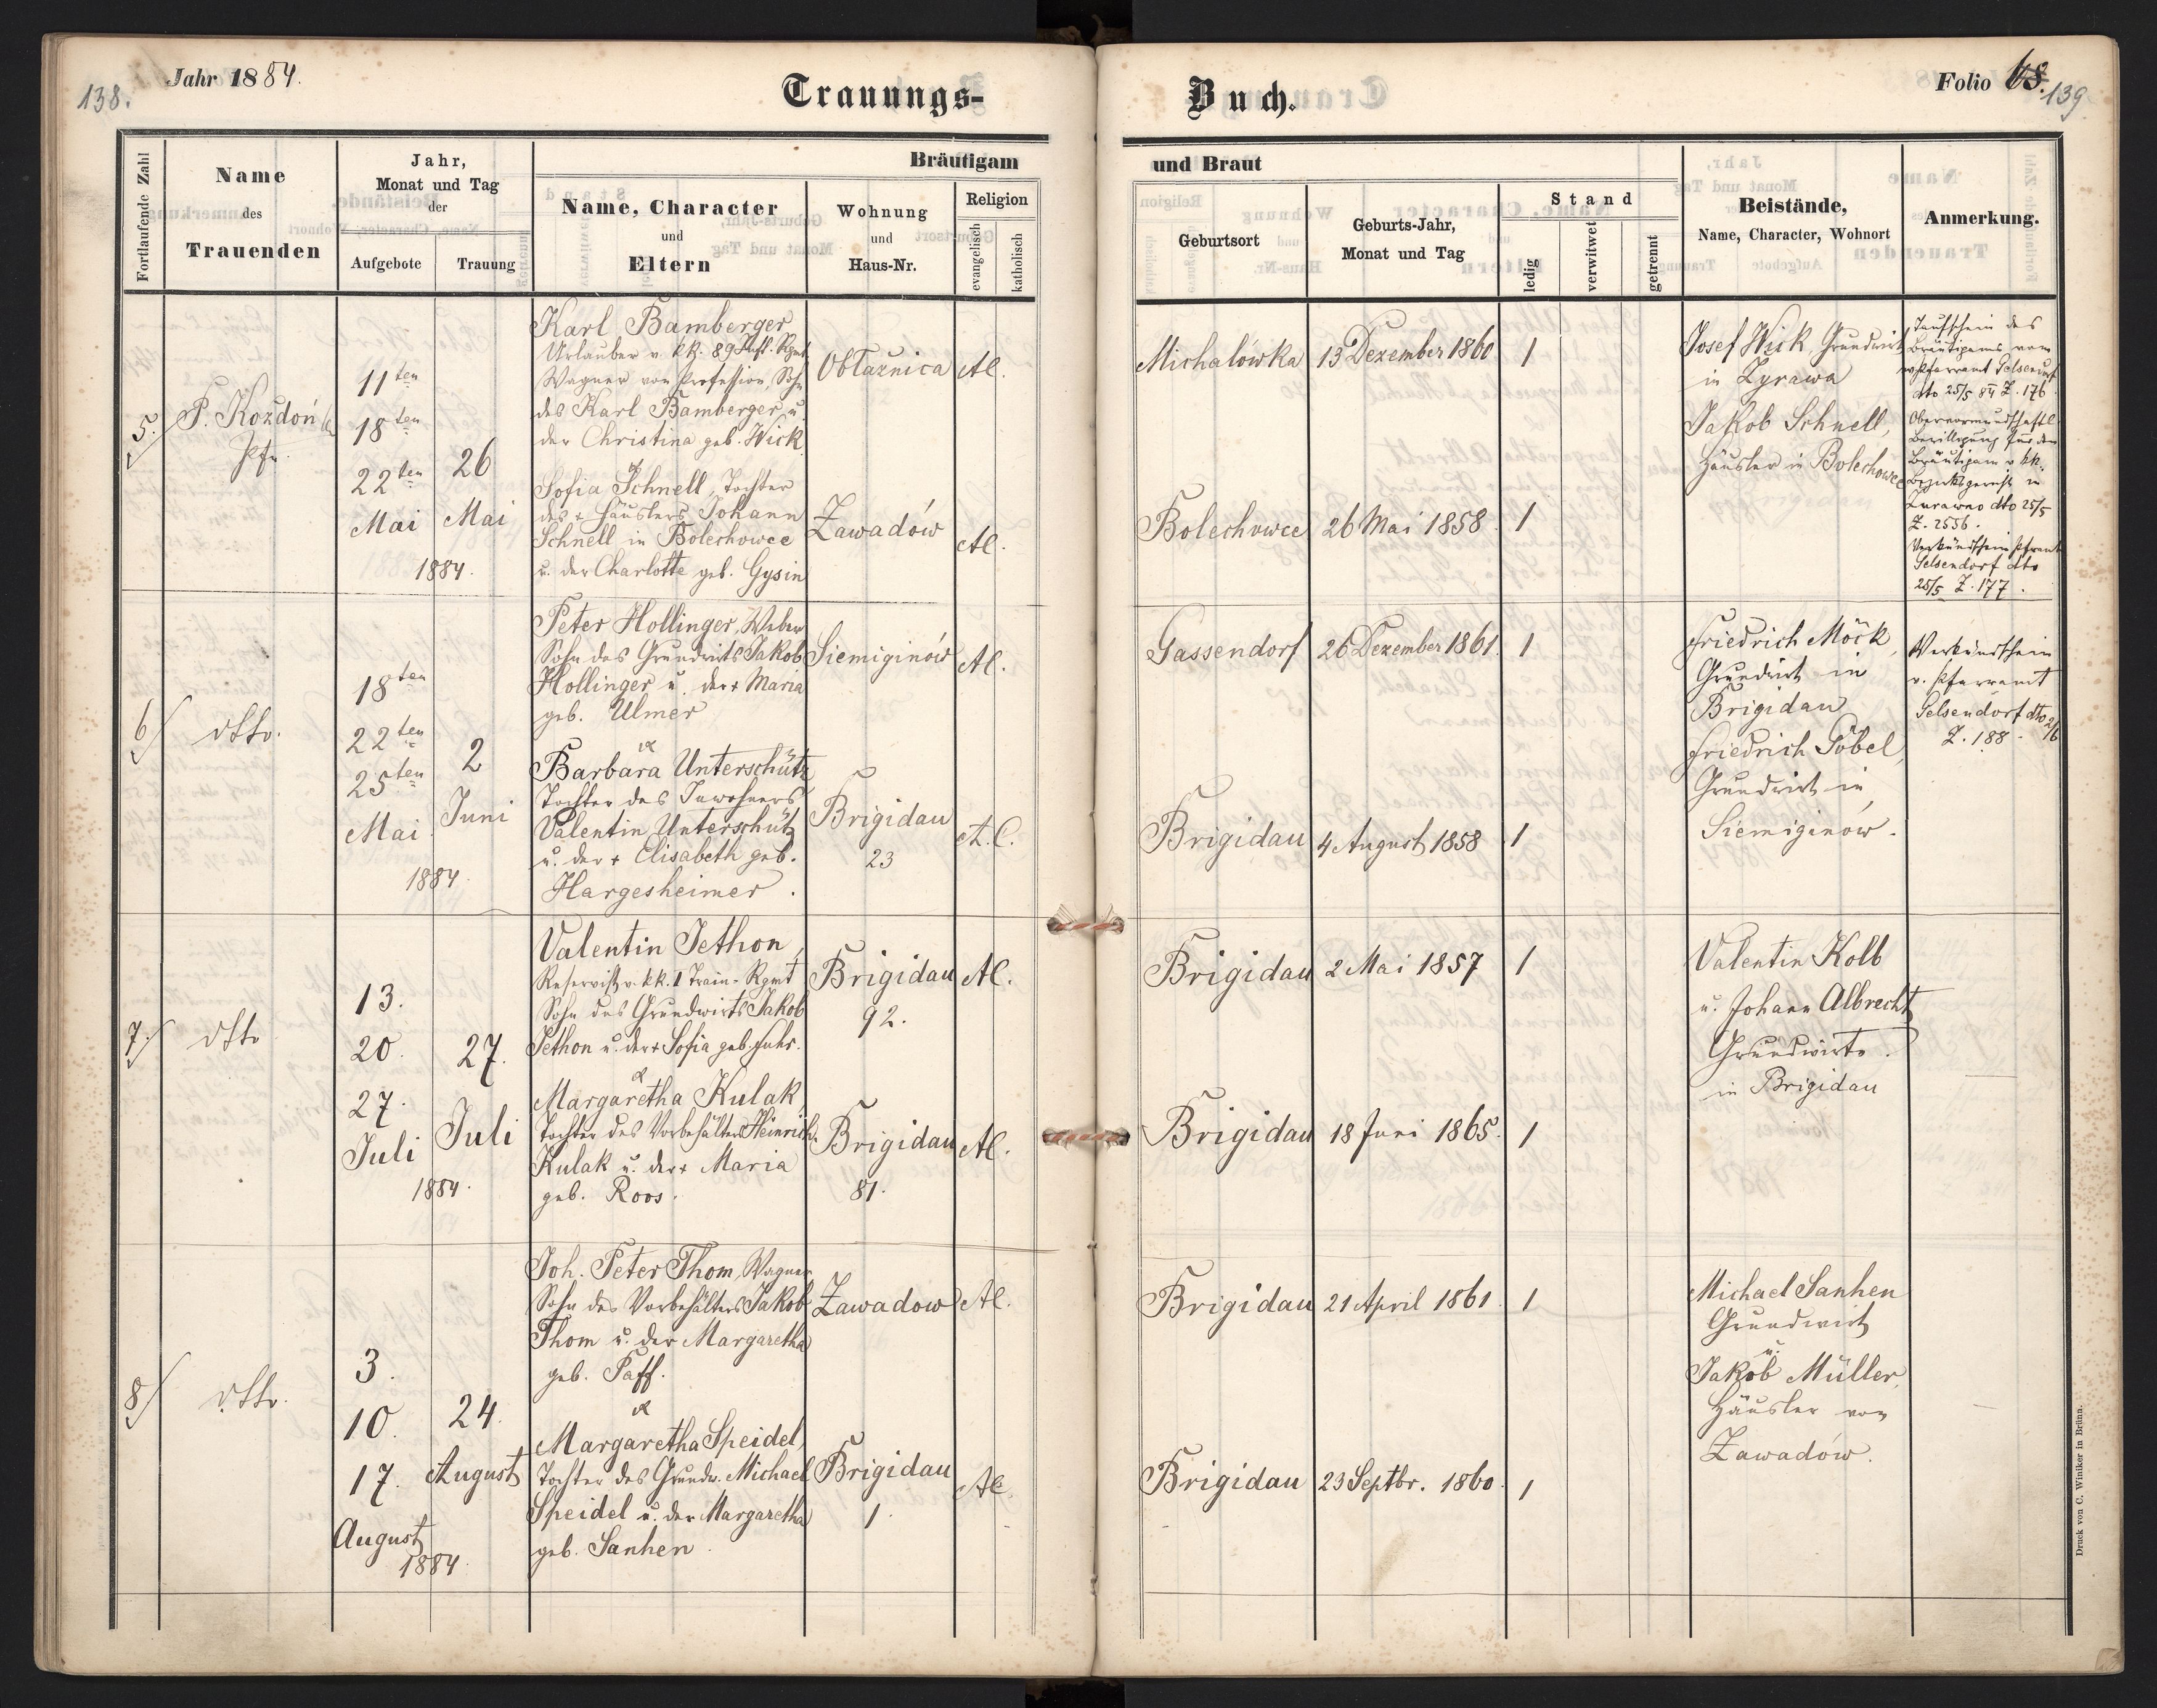 138.
Jahr 1884.
Trauungs-
Buch.
Folio 68.
139
Fortlaufende Zahl
Name
des
Trauenden
Jahr,
Monat und Tag
der
Aufgebote
Trauung
Bräutigam
Name, Character
und
Eltern
Wohnung
und
Haus-Nr.
Religion
evangelisch
katholisch
und Braut
Geburtsort
Geburts-Jahr,
Monat und Tag
Stand
ledig
verwitwet
getrennt
Beistände,
Name, Character, Wohnort
Anmerkung.
5.
P. Kozdoń
Pfr.
11ten
18ten
22ten
Mai
26
Mai
1884.
Karl Bamberger
Urlauber v. kk. 89 Inft. Rgmt
Wagner von Profession, Sohn
des Karl Bamberger u.
der Christina geb. Wick
&
Sofia Schnell, Tochter
des + Häuslers Johann
Schnell in Bolechowce
u. der Charlotte geb. Gysin
Obłaznica
AC.
Zawadów
AC.
Michalówka
13 Dezember 1860
1
Bolechowce
26 Mai 1858.
1
Josef Wick Grundwirt
in Zyrawa
Jakob Schnell,
Häusler in Bolechowce
Taufschein des
Bräutigams vom
Pfarramt Gelsendorf
dto 25/5 84 Z. 176
Obervormundschaftl.
Bewilligung für den
Bräutigam v. kk.
Bezirksgericht in
Zurawno dto 25/5
Z. 2556.
Verkündschein Pframt
Gelsendorf dto
25/5 Z. 177.
6
dtto.
18ten
22ten
25ten
Mai
2
Juni
1884.
Peter Hollinger, Weber
Sohn des Grundwirts Jakob
Hollinger u. der + Maria
geb. Ulmer
&
Barbara Unterschütz
Tochter des Inwohners
Valentin Unterschütz
u. der + Elisabeth geb.
Hargesheimer.
Siemiginów
AC.
Brigidau
23
A.C.
Gassendorf
26 Dezember 1861.
1
Brigidau
4 August 1858
1
Friedrich Möck,
Grundwirt in
Brigidau
Friedrich Göbel,
Grundwirt in
Siemiginow.
Verkündschein
v. Pfarramt
Gelsendorf dto 2/6
Z. 188.
7.
dtto
13.
20.
27.
Juli
27.
Juli
1884.
Valentin Jethon,
Reservist v. kk. 1 Train-Rgmt
Sohn des Grundwirts Jakob
Jethon u. der + Sofia geb. Fuhr.
&
Margaretha Kulak,
Tochter des Vorbehälters Heinrich
Kulak u. der + Maria
geb. Roos.
Brigidau
92.
AC.
Brigidau
81.
AC.
Brigidau
2 Mai 1857
1
Brigidau
18 Juni 1865.
1
Valentin Kolb
u. Johann Albrecht
Grundwirte.
in Brigidau
8
dtto.
3.
10.
17.
August
24.
August
1884.
Joh. Peter Thom, Wagner
Sohn des Vorbehälters Jakob
Thom u. der Margaretha
geb. Paff.
&
Margaretha Speidel,
Tochter des Grundw. Michael
Speidel u. der Margaretha
geb. Sanhen.
Zawadow
AC.
Brigidau
1.
AC.
Brigidau
21 April 1861.
1
Brigidau
23 Septbr. 1860.
1
Michael Sanhen
Grundwirt
u.
Jakob Müller,
Häusler von
Zawadów.
Druck von C. Winiker in Brünn.